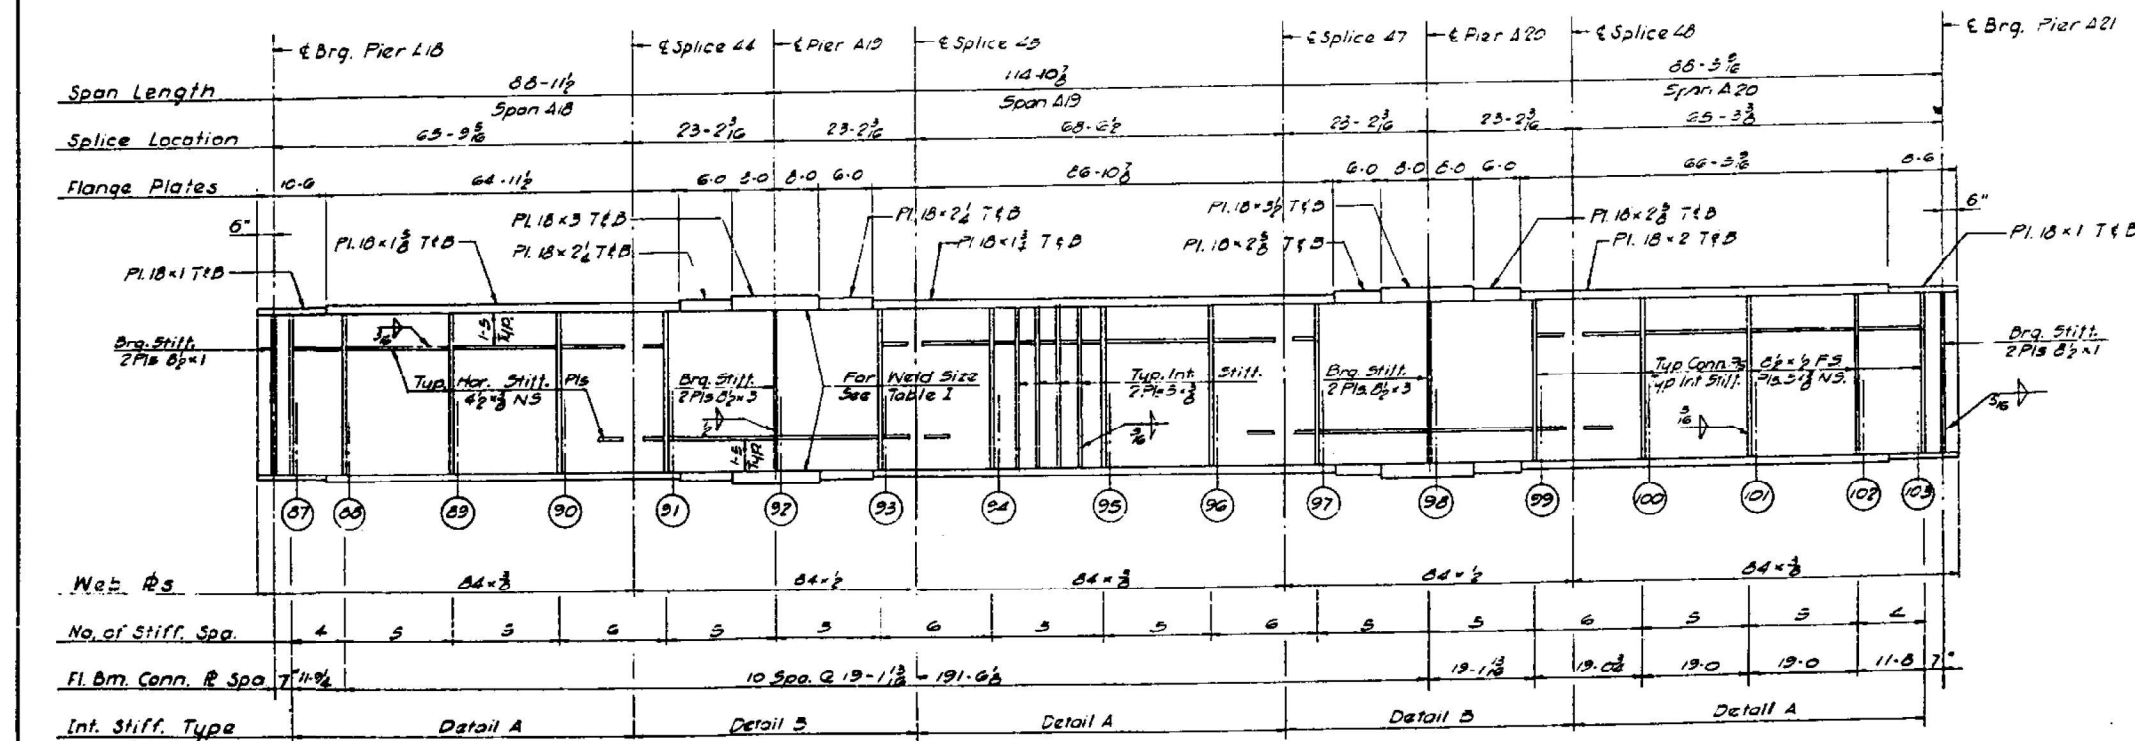 ℄ Brg. Pier A18
℄ Splice 44
℄ Pier A19
℄ Splice 45
℄ Splice 47
℄ Pier A20
℄ Splice 48
℄ Brg. Pier A21
Span Length 88-11½ 114-10⅞ 88-5 5/16
Span A18 Span A19 Span A20
Splice Location 65-9 5/16 23-2 3/16 23-2 3/16 68-6½ 23-2 3/16 23-2 3/16 65-3⅜
Flange Plates 10-6 64-11½ 6-0 8-0 8-0 6-0 86-10⅞ 6-0 8-0 8-0 6-0 8-6
6" Pl. 18×3 T&B Pl. 18×2¼ T&B Pl. 18×3½ T&B Pl. 18×2⅝ T&B 6"
Pl. 18×1⅝ T&B Pl. 18×2¼ T&B Pl. 18×1¾ T&B Pl. 18×2⅝ T&B Pl. 18×2 T&B Pl. 18×1 T&B
Pl. 18×1 T&B
Brg. Stiff.
2 Pls 8½×1
3/16
1-5
Typ.
Typ. Hor. Stiff. Pls
4½×⅜ NS
Brg. Stiff.
2 Pls 8½×3
1-5
Typ.
For Weld Size
See Table I
Typ. Int. Stiff.
2 Pls 5×⅜
3/16
Brg. Stiff.
2 Pls. 8½×3
Typ Conn. ℙs 8½×½ FS
Typ Int Stiff. Pls. 5×⅜ NS.
3/16
Brg. Stiff.
2 Pls 8½×1
3/16
87 88 89 90 91 92 93 94 95 96 97 98 99 100 101 102 103
Web ℙs 84×⅜ 84×½ 84×⅜ 84×½ 84×⅜
No. of Stiff. Spa. 4 5 5 6 5 5 6 5 5 6 5 5 6 5 5 4
Fl. Bm. Conn. ℙ Spa 7" 11-9¼ 10 Spa. @ 19-1 13/16 = 191-6⅛ 19-1 13/16 19-0¾ 19-0 19-0 11-8 7"
Int. Stiff. Type Detail A Detail B Detail A Detail B Detail A